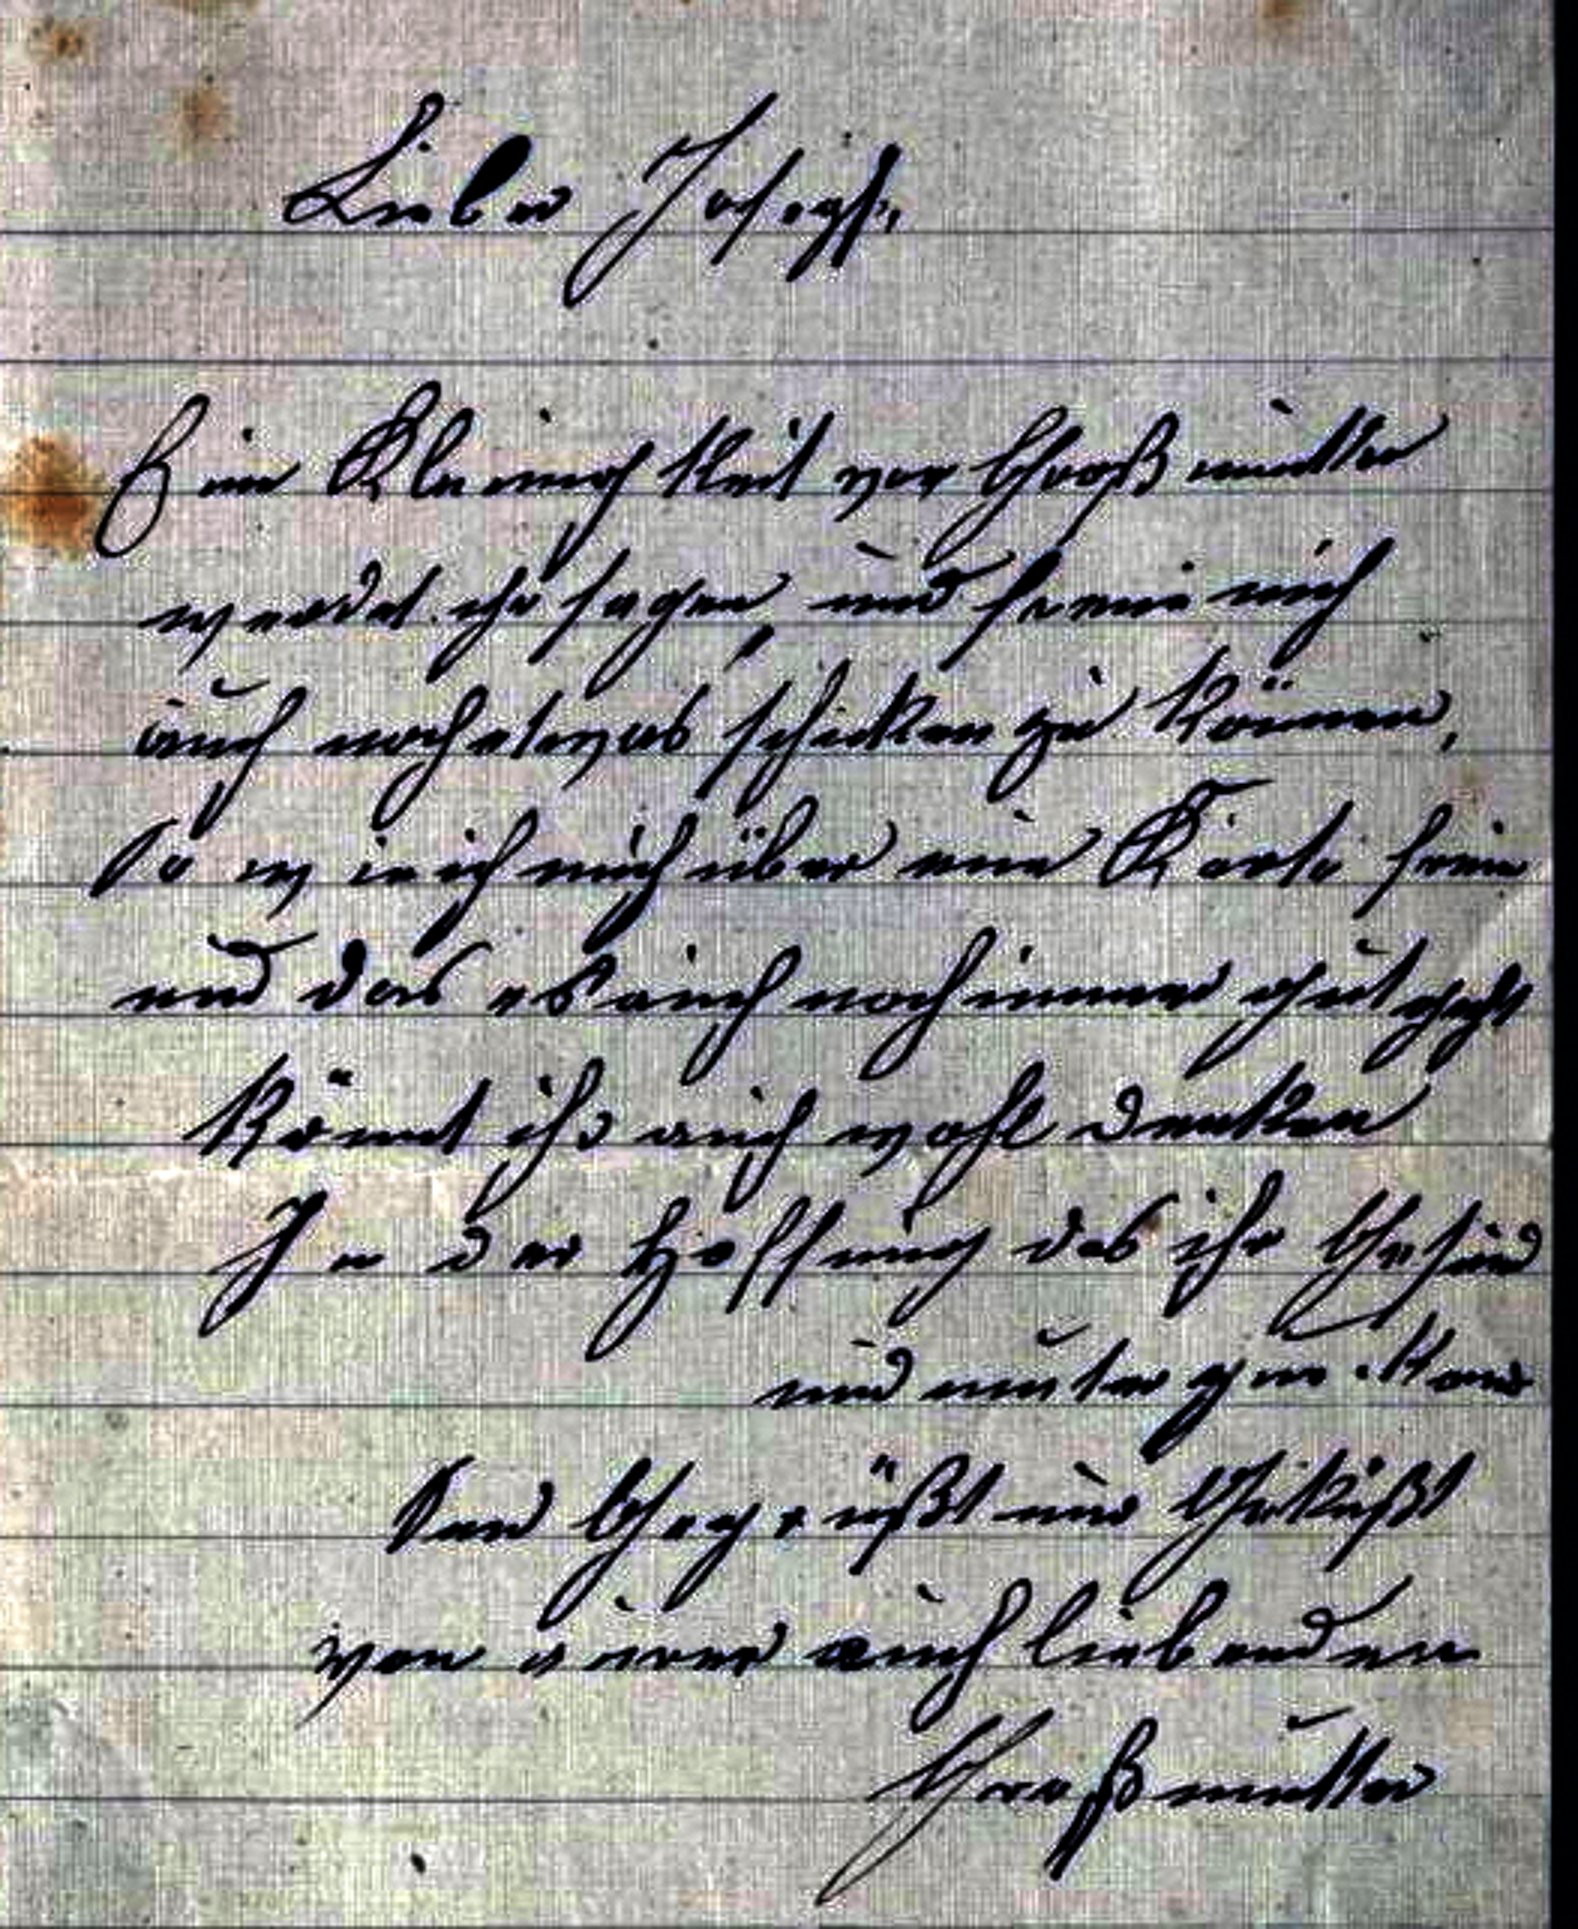 Lieber Josef,
Ein Kleinigkeit von Großmutter
werdet ihr sagen, und freue mich
auch noch etwas schicken zu können,
So wie ich mich über eine Karte freue
und das es auch noch immer gut geht
könnt ihr auch wohl denken
In der Hoffnung das ihr Gesund
und munter
Seid Gegrüßt und Geküßt
von eurer auch liebenden
Großmutter